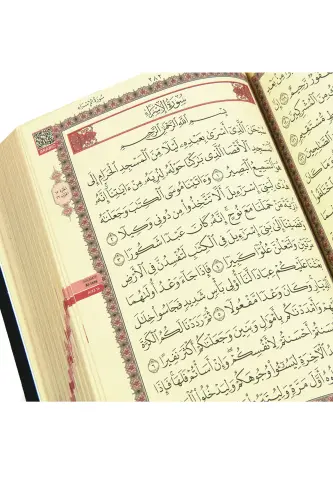 سُورَةُ الْإِسْرَاءِ
٢٨٢
سُورَةُ الْإِسْرَاءِ
بِسْمِ اللَّهِ الرَّحْمَٰنِ الرَّحِيمِ
سُبْحَانَ الَّذِي أَسْرَىٰ بِعَبْدِهِ لَيْلًا مِنَ الْمَسْجِدِ الْحَرَامِ إِلَى
الْمَسْجِدِ الْأَقْصَا الَّذِي بَارَكْنَا حَوْلَهُ لِنُرِيَهُ مِنْ آيَاتِنَا إِنَّهُ
هُوَ السَّمِيعُ الْبَصِيرُ ١ وَآتَيْنَا مُوسَى الْكِتَابَ وَجَعَلْنَاهُ
هُدًى لِبَنِي إِسْرَائِيلَ أَلَّا تَتَّخِذُوا مِنْ دُونِي وَكِيلًا ٢
ذُرِّيَّةَ مَنْ حَمَلْنَا مَعَ نُوحٍ إِنَّهُ كَانَ عَبْدًا شَكُورًا ٣
وَقَضَيْنَا إِلَىٰ بَنِي إِسْرَائِيلَ فِي الْكِتَابِ لَتُفْسِدُنَّ فِي الْأَرْضِ
مَرَّتَيْنِ وَلَتَعْلُنَّ عُلُوًّا كَبِيرًا ٤ فَإِذَا جَاءَ وَعْدُ أُولَاهُمَا
بَعَثْنَا عَلَيْكُمْ عِبَادًا لَنَا أُولِي بَأْسٍ شَدِيدٍ فَجَاسُوا خِلَالَ
الدِّيَارِ وَكَانَ وَعْدًا مَفْعُولًا ٥ ثُمَّ رَدَدْنَا لَكُمُ الْكَرَّةَ
عَلَيْهِمْ وَأَمْدَدْنَاكُمْ بِأَمْوَالٍ وَبَنِينَ وَجَعَلْنَاكُمْ أَكْثَرَ نَفِيرًا ٦
إِنْ أَحْسَنْتُمْ أَحْسَنْتُمْ لِأَنْفُسِكُمْ وَإِنْ أَسَأْتُمْ فَلَهَا فَإِذَا
جَاءَ وَعْدُ الْآخِرَةِ لِيَسُوءُوا وُجُوهَكُمْ وَلِيَدْخُلُوا
أَوَّلَ مَرَّةٍ وَلِيُتَبِّرُوا